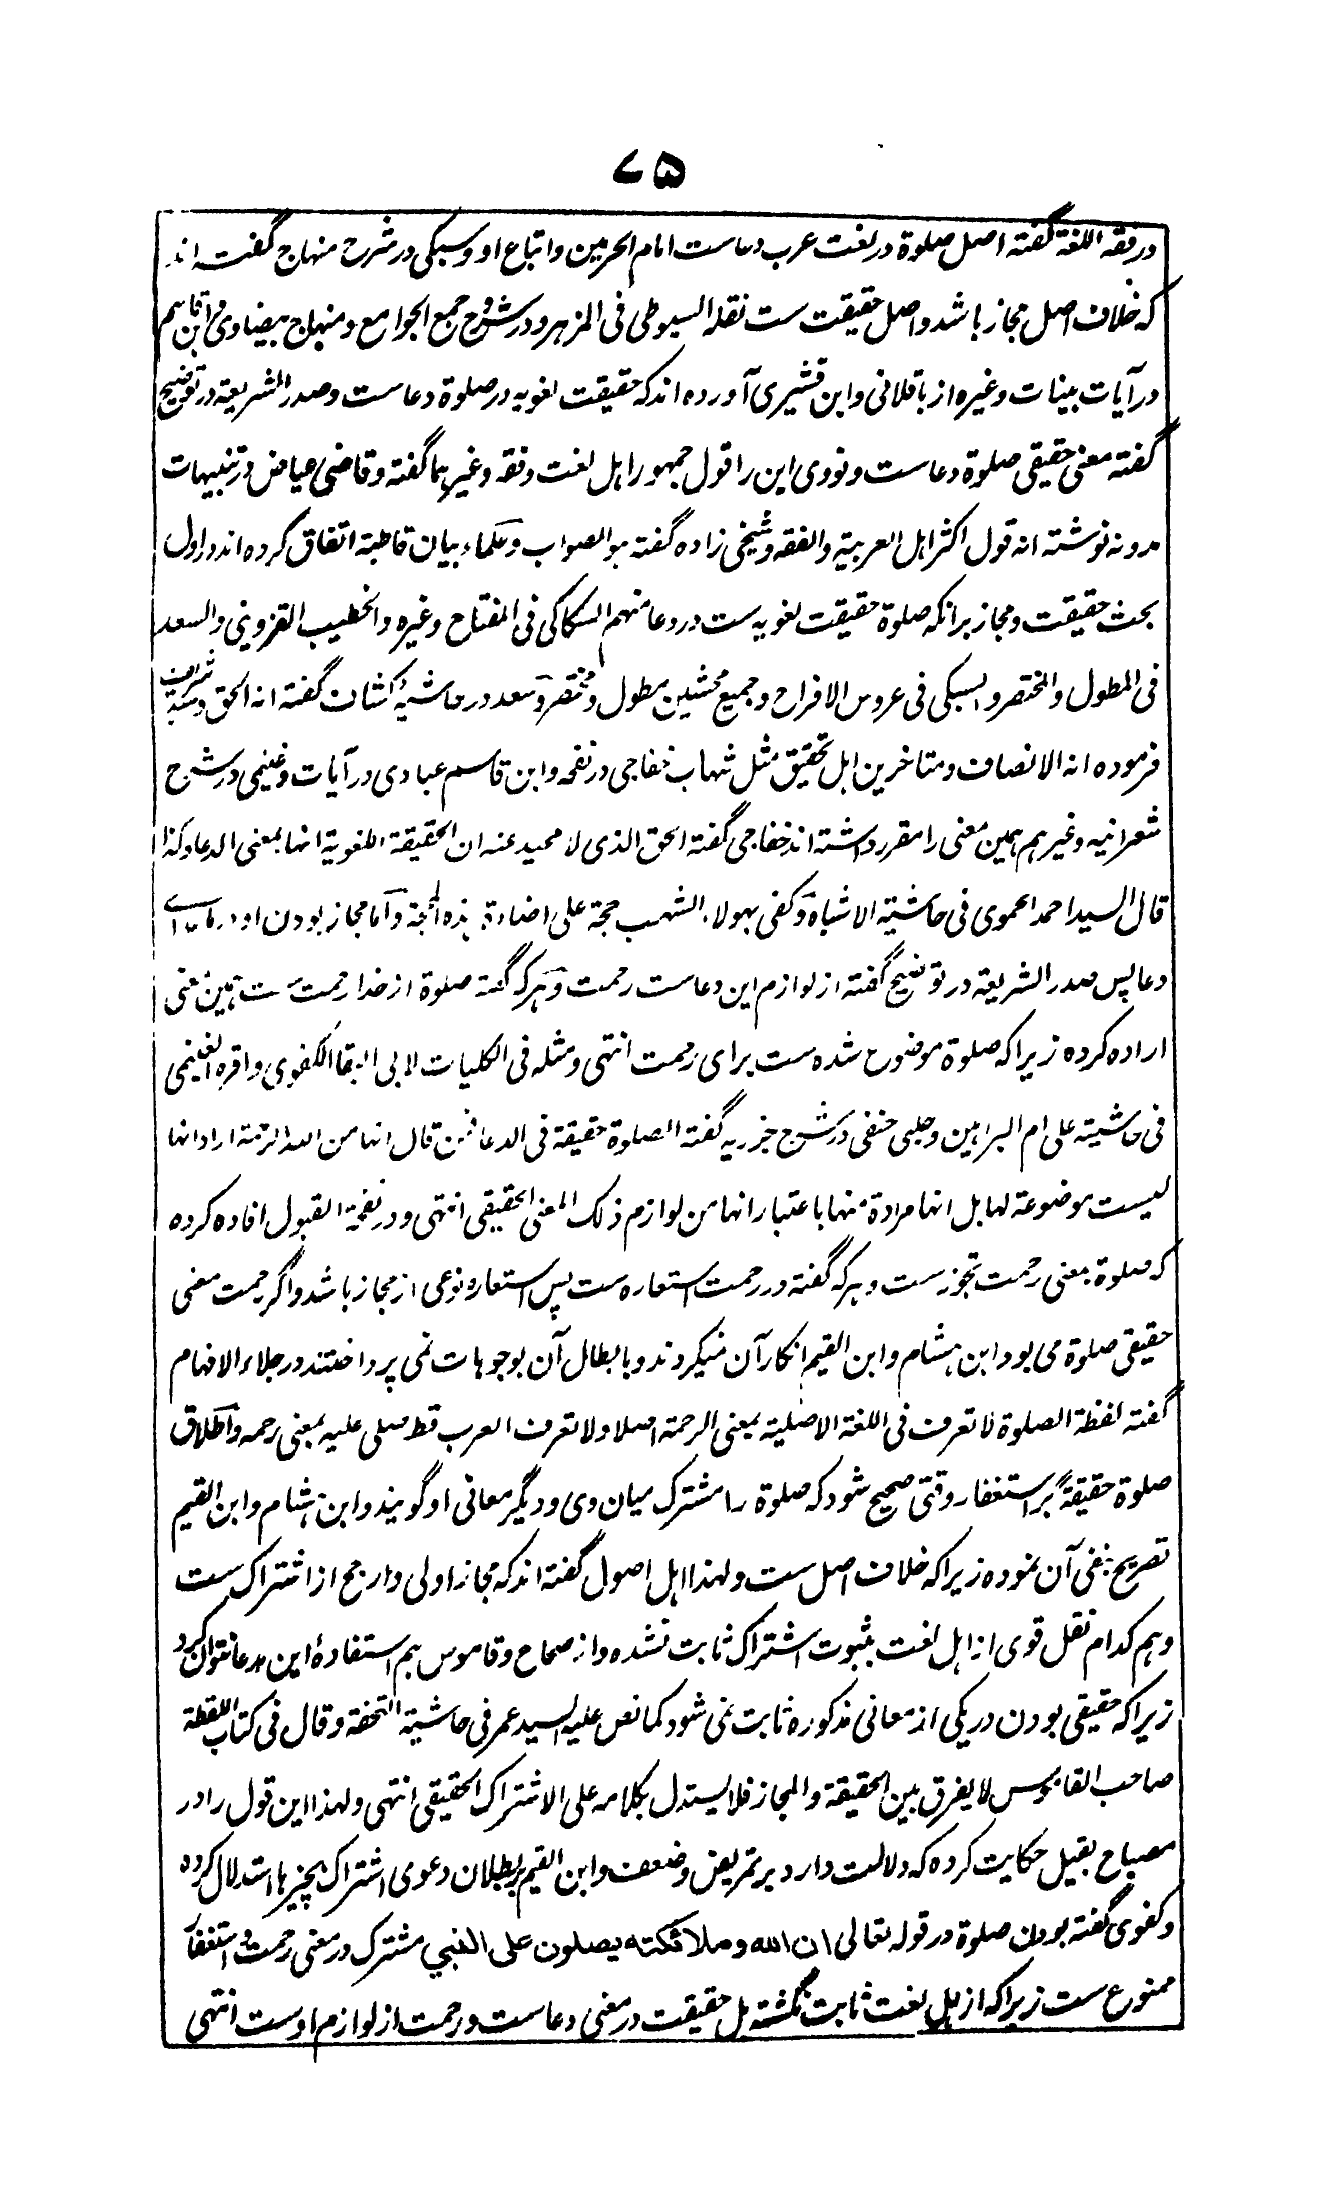 ۷۵
در فقه اللغة گفته اصل صلوة در لغت عرب دعاست امام الحرمین و اتباع او و سبکی در شرح منهاج گفته اند
که خلاف اصل مجاز باشد و اصل حقیقت ست نقله السیوطی فی المزهر و در شروح جمع الجوامع و منهاج بیضاوی و ابن قاسم
در آیات بینات وغیره از باقلانی و ابن قشیری آورده اند که حقیقت لغویه در صلوة دعاست و صدر الشریعة در توضیح
گفته معنی حقیقی صلوة دعاست و نووی این را قول جمهور اهل لغت و فقه وغیرهما گفته و قاضی عیاض در تنبیهات
مدونه نوشته انه قول اکثر اهل العربیة والفقه و شیخی زاده گفته هو الصواب و علماء بیان قاطبة اتفاق کرده اند در اول
بحث حقیقت و مجاز برانکه صلوة حقیقت لغویه ست در دعا منهم السکاکی فی المفتاح وغیره والخطیب القزوینی والسعد
فی المطول والمختصر والسبکی فی عروس الافراح و جمیع محشین مطول و مختصر و سعد در حاشیهٔ کشاف گفته انه الحق و سید شریف
فرموده انه الانصاف و متاخرین اهل تحقیق مثل شهاب خفاجی در نفحه و ابن قاسم عبادی در آیات و غنیمی در شرح
شعرانیه وغیرهم همین معنی را مقرر داشته اند خفاجی گفته الحق الذی لا محید عنه ان الحقیقة اللغویة انها بمعنی الدعا و کذا
قال السید احمد الحموی فی حاشیة الاشباه و کفی بهولاء الشهب حجة علی اضاءة هذه الحجة و اما مجاز بودن او در ماورای
دعا پس صدر الشریعة در توضیح گفته از لوازم این دعاست رحمت و هرکه گفته صلوة از خدا رحمت ست همین معنی
اراده کرده زیراکه صلوة موضوع شده ست برای رحمت انتهی و مثله فی الکلیات لابی البقا الکفوی و اقره الغنیمی
فی حاشیة علی ام البراهین و حلبی حنفی در شرح جزریه گفته الصلوة حقیقة فی الدعا فمن قال انها من الله الرحمة اراد انها
لیست موضوعة لها بل انها مرادة منها باعتبار انها من لوازم ذلک المعنی الحقیقی انتهی و در نفحة القبول افاده کرده
که صلوة بمعنی رحمت تجوز ست و هرکه گفته در رحمت استعاره ست پس استعاره نوعی از مجاز باشد و اگر رحمت معنی
حقیقی صلوة می بود ابن هشام و ابن القیم انکار آن نمیکردند و بابطال آن بوجوهات نمی پرداختند در جلاء الافهام
گفته لفظة الصلوة لا تعرف فی اللغة الاصلیة بمعنی الرحمة اصلا ولا تعرف العرب قط صلی علیه بمعنی رحمه و اطلاق
صلوة حقیقةً بر استغفار وقتی صحیح شود که صلوة را مشترک میان وی و دیگر معانی او گویند و ابن هشام و ابن القیم
تصریح بنفی آن نموده زیراکه خلاف اصل ست ولهذا اهل اصول گفته اند که مجاز اولی و ارجح از اشتراک ست
و هم کدام نقل قوی از اهل لغت بثبوت اشتراک ثابت نشده و از صحاح و قاموس هم استفادهٔ این مدعا نتوان کرد
زیراکه حقیقی بودن در یکی از معانی مذکوره ثابت نمی شود کما نص علیه السید عمر فی حاشیة التحفة و قال فی کتاب اللقطة
صاحب القاموس لا یفرق بین الحقیقة والمجاز فلا یستدل بکلامه علی الاشتراک الحقیقی انتهی ولهذا این قول را در
مصباح بقیل حکایت کرده که دلالت دارد بر تمریض و ضعف و ابن القیم بر بطلان دعوی اشتراک بچیزها استدلال کرده
و کفوی گفته بودن صلوة در قوله تعالی ان الله وملائکته یصلون علی النبی مشترک در معنی رحمت و استغفار
ممنوع ست زیراکه از اهل لغت ثابت نگشته بل حقیقت در معنی دعاست و رحمت از لوازم اوست انتهی